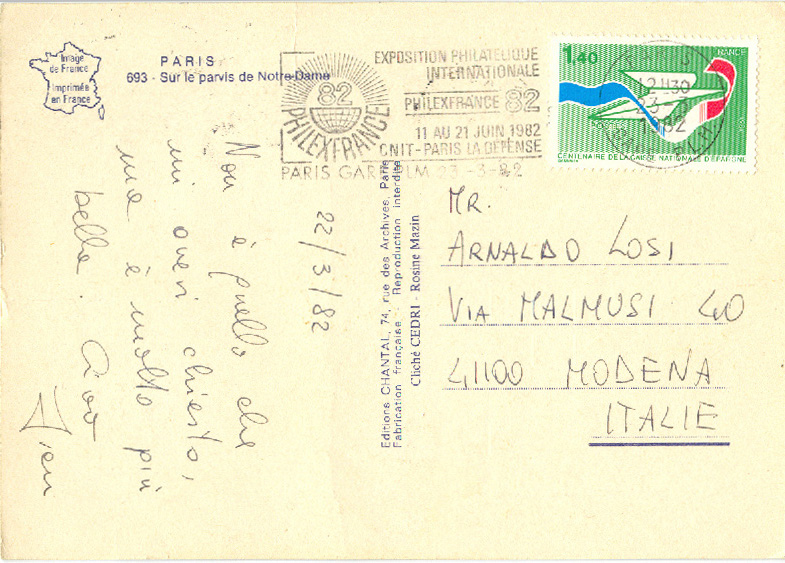 Image
de France
Imprimée
en France
PARIS
693 - Sur le parvis de Notre-Dame
82
PHILEXFRANCE
EXPOSITION PHILATELIQUE
INTERNATIONALE
PHILEXFRANCE 82
11 AU 21 JUIN 1982
CNIT-PARIS LA DEFENSE
PARIS GARE PLM 23 -3-82
1,40
FRANCE
12H30
23-3
1982
CENTENAIRE DE LA CAISSE NATIONALE D'EPARGNE
22/3/82
Non è quello che
mi avevi chiesto,
ma è molto più
bella. Ciao
Editions CHANTAL, 74, rue des Archives, Paris
Fabrication française - Reproduction interdite
Cliché CEDRI - Rosine Mazin
MR.
ARNALDO LOSI
VIA MALMUSI 40
41100 MODENA
ITALIE